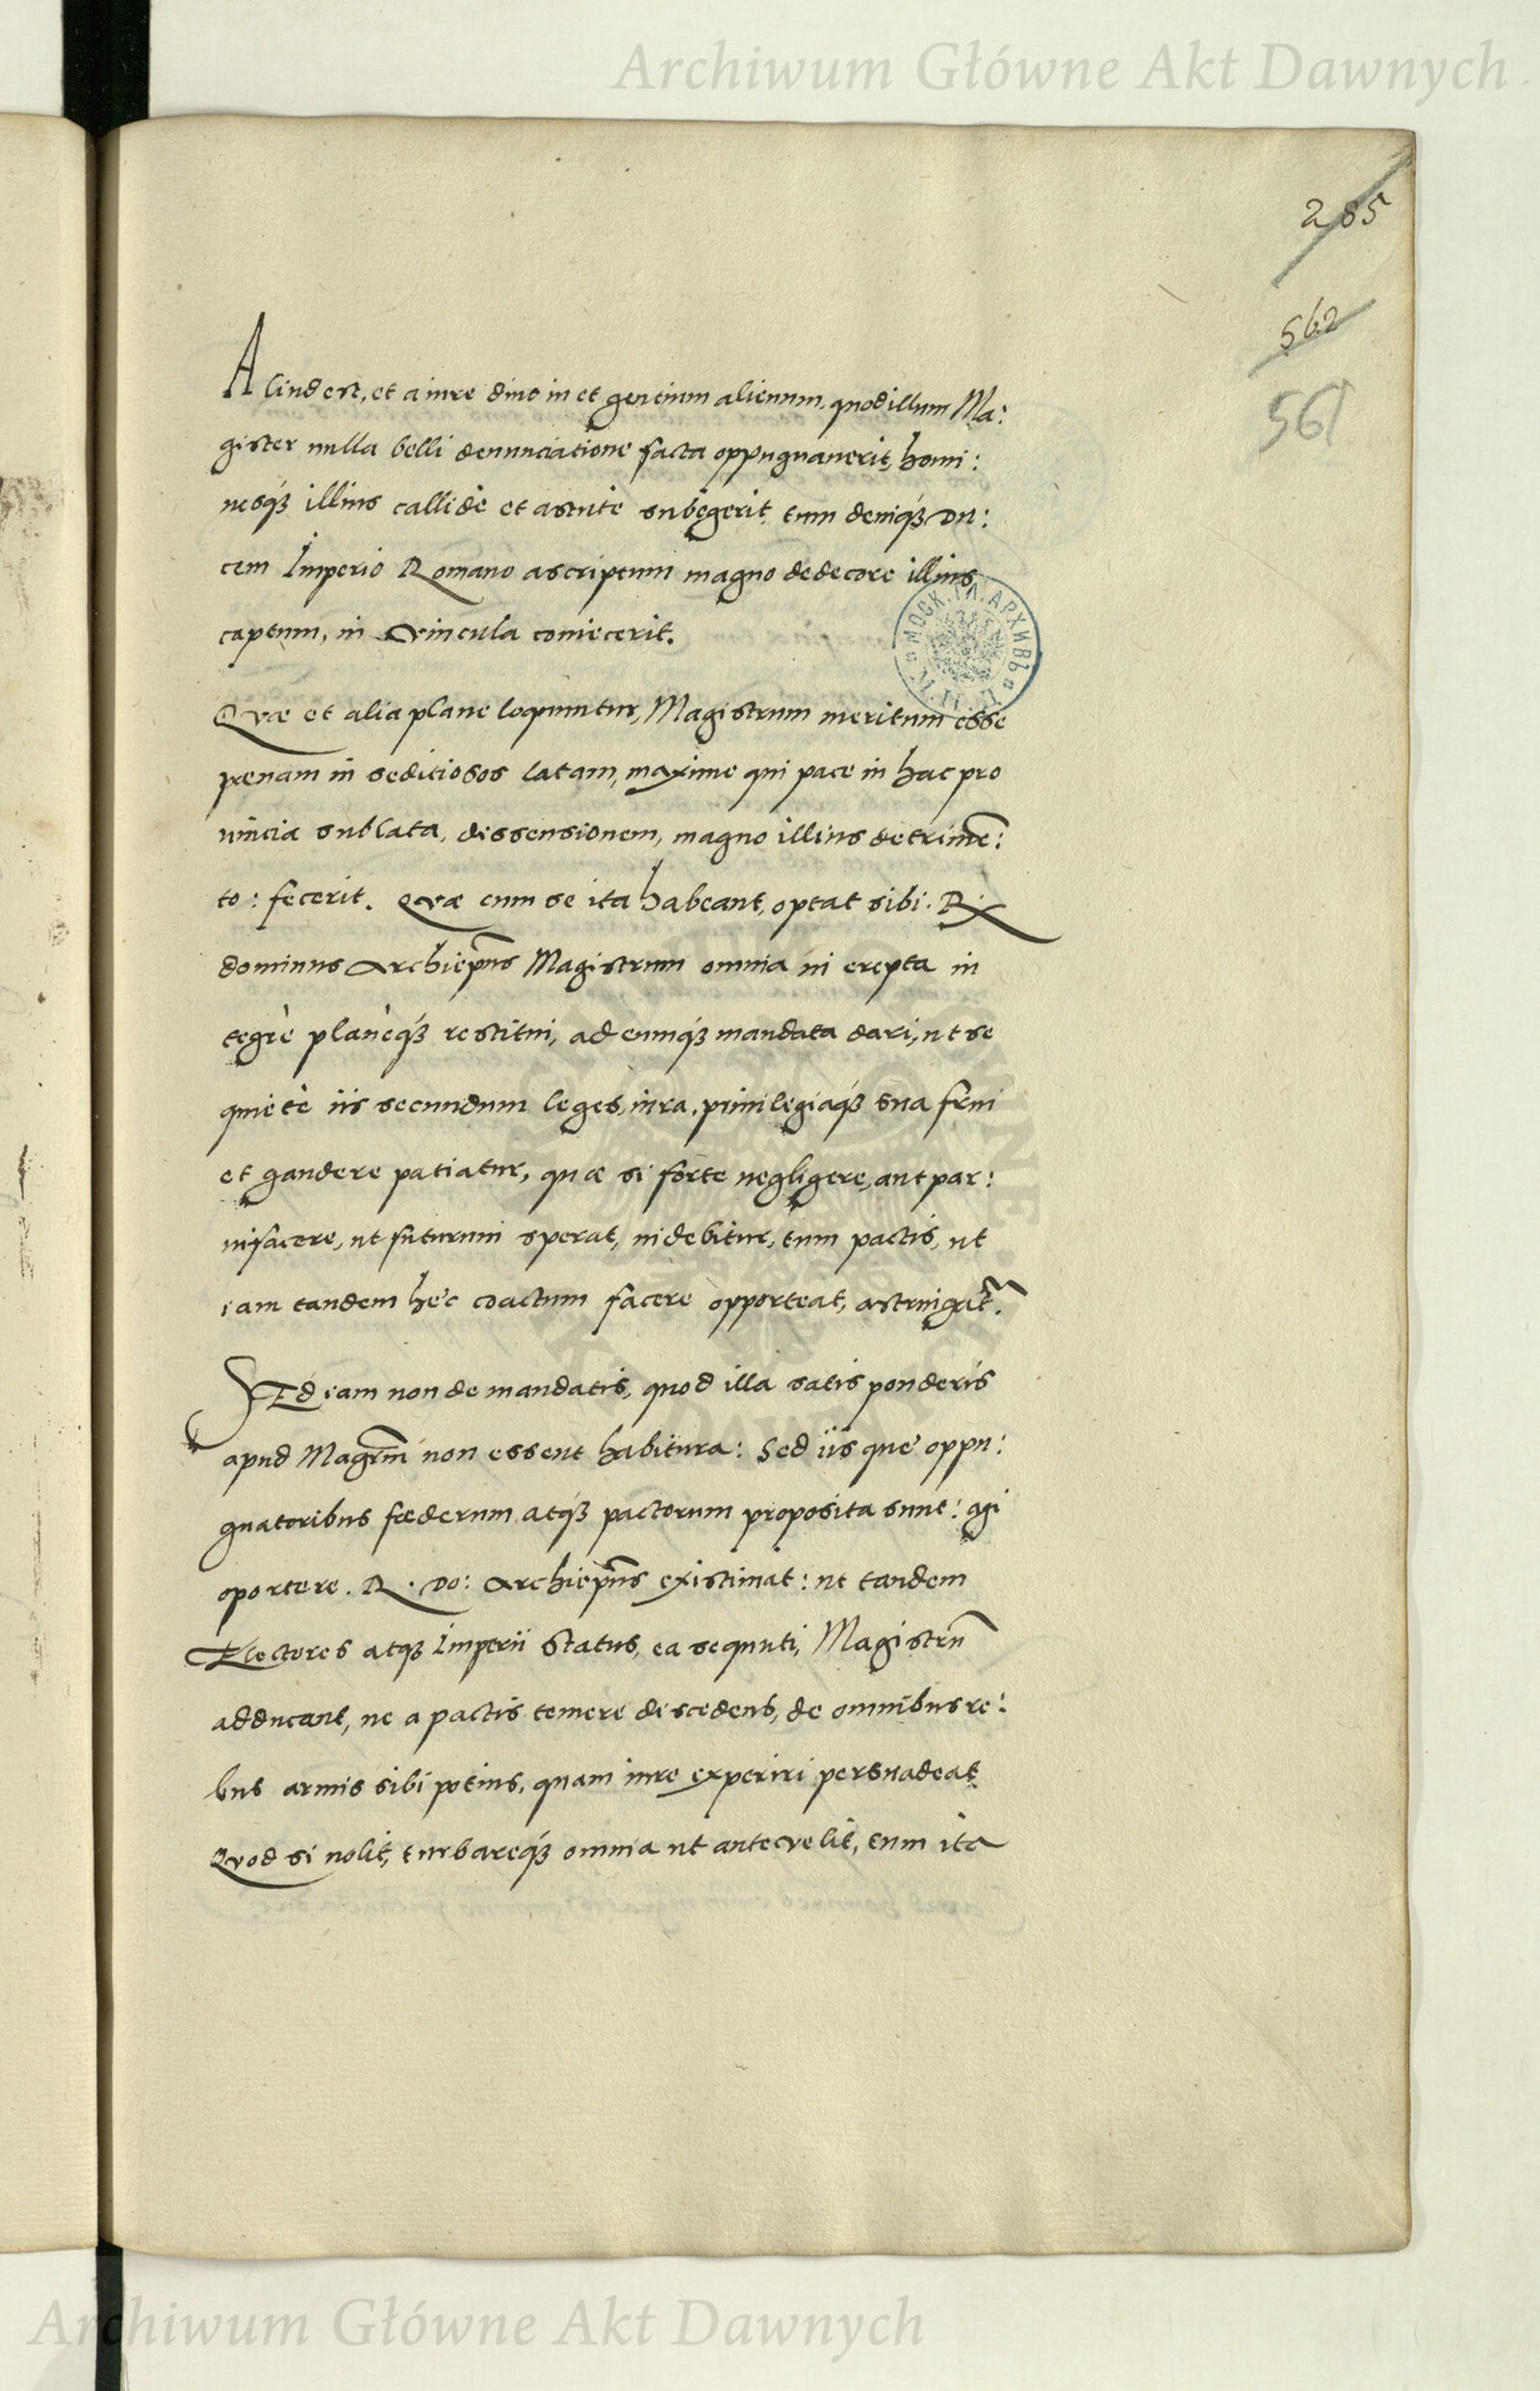 Archiwum Główne Akt Dawnych
285
562
561
Aliud est, et a iure diuino et gentium alienum, quod illum Ma:
gister nulla belli denunciatione facta oppugnauerit, homi:
nesq́ꝫ illius callidè et astutè subegerit, tum deniq́ꝫ Du:
cem Imperio Romano ascriptum magno dedecore illius
captum, in vincula coniecerit.
МОСК. ГЛ. АРХИВЪ
Quæ et alia plane loquuntur, Magistrum meritum esse
pœnam in seditiosos latam, maxime qui pace in hac pro
uincia sublata, dissensionem, magno illius detrimẽ:
to: fecerit. Quæ cum se ita habeant, optat sibi. R.
dominus Archiep̃us Magistrum omnia ui erepta in
tegrè planèq́ꝫ restitui, ad eumq́ꝫ mandata dari, ut se
quietè iis secundum leges, iura, priuilegiaq́ꝫ sua frui
et gaudere patiatur, quæ si forte negligere, aut par:
uifacere, ut futurum sperat, uidebitur, tum pactis, ut
iam tandem hec coactum facere opporteat, astringat̃.
SEd iam non de mandatis, quod illa satis ponderis
apud Magr̃m non essent habitura: Sed iis que oppu:
gnatoribus fœderum atq́ꝫ pactorum proposita sunt: agi
oportere. R. Do: Archiep̃us existimat: ut tandem
Electores atqꝫ Imperii Status, ea sequuti, Magistrũ
adducant, ne a pactis temere discedens, de omnibus re:
bus armis sibi potius, quam iure experiri persuadeat
Quod si nolit, turbareq́ꝫ omnia ut ante velit, tum ita
Archiwum Główne Akt Dawnych